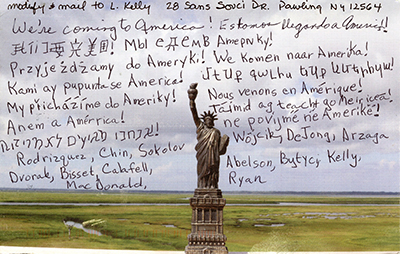 modify & mail to L. Kelly 28 Sans Souci Dr. Pawling NY 12564
We're coming to America! Estamos llegando a América!!
我们要来美国! Мы едем в Америку!
Przyjeżdżamy do Ameryki! We Komen naar Amerika!
Kami ay pupunta sa America!
My přicházíme do Ameriky! Nous venons en Amérique!
Anem a Amèrica! Táimid ag teacht go Meiriceá!
ne povijmë në Amerikë!
Rodriguez, Chin, Sokolov Wójcik, DeJong, Arzaga
Dvorak, Bisset, Calafell, Abelson, Bytyci, Kelly,
MacDonald, Ryan